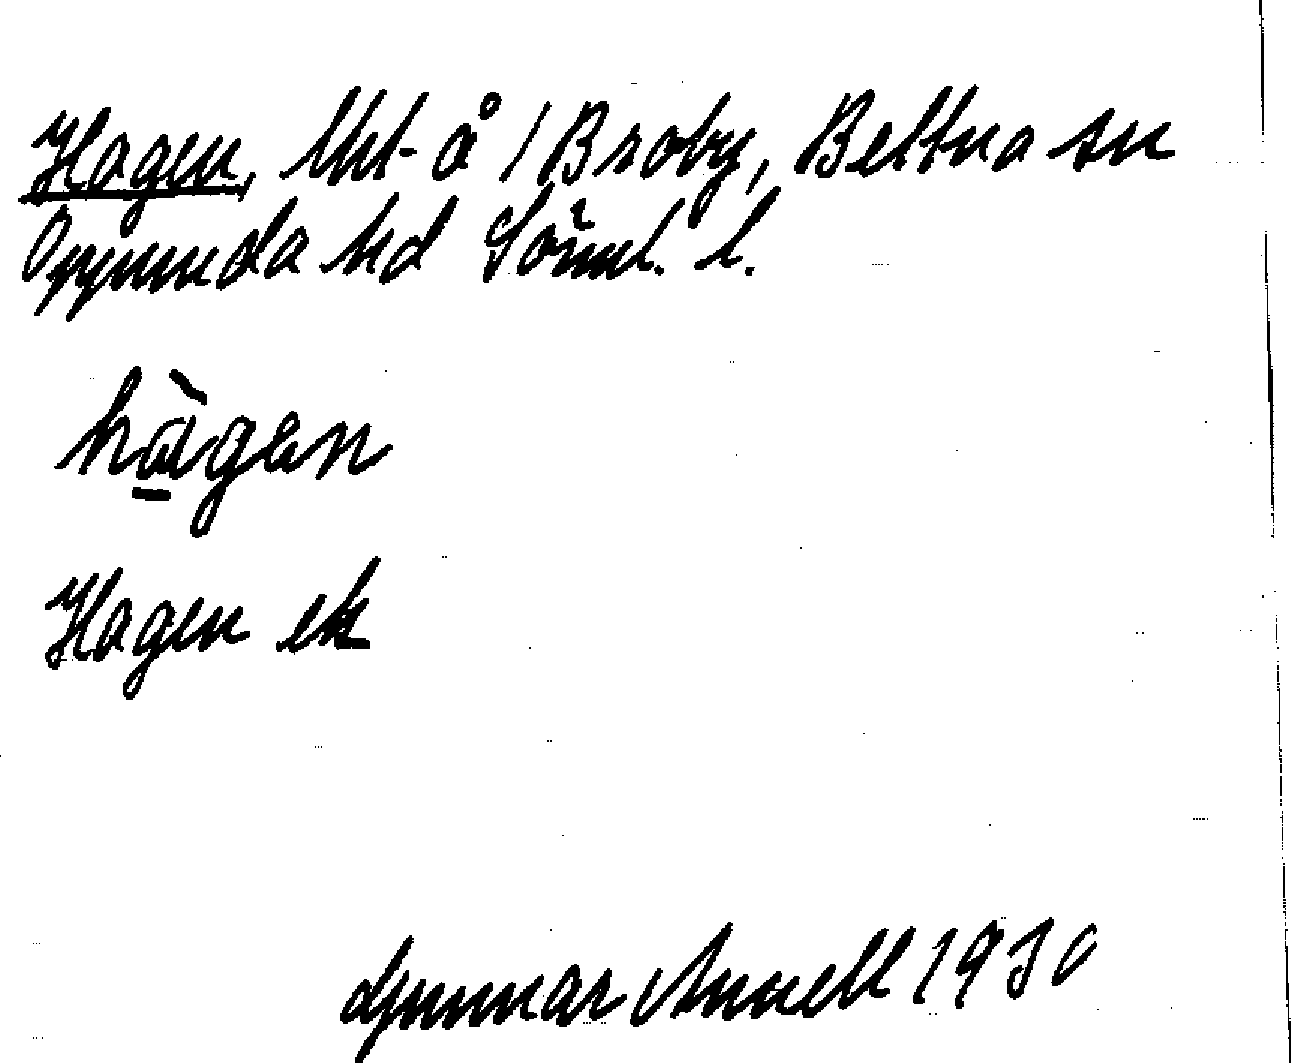 Hagen, lht å 1 Broby, Bettna sn
Oppunda hd Söml. l.
hàgen
Hagen ek
Gunnar Annell 1930